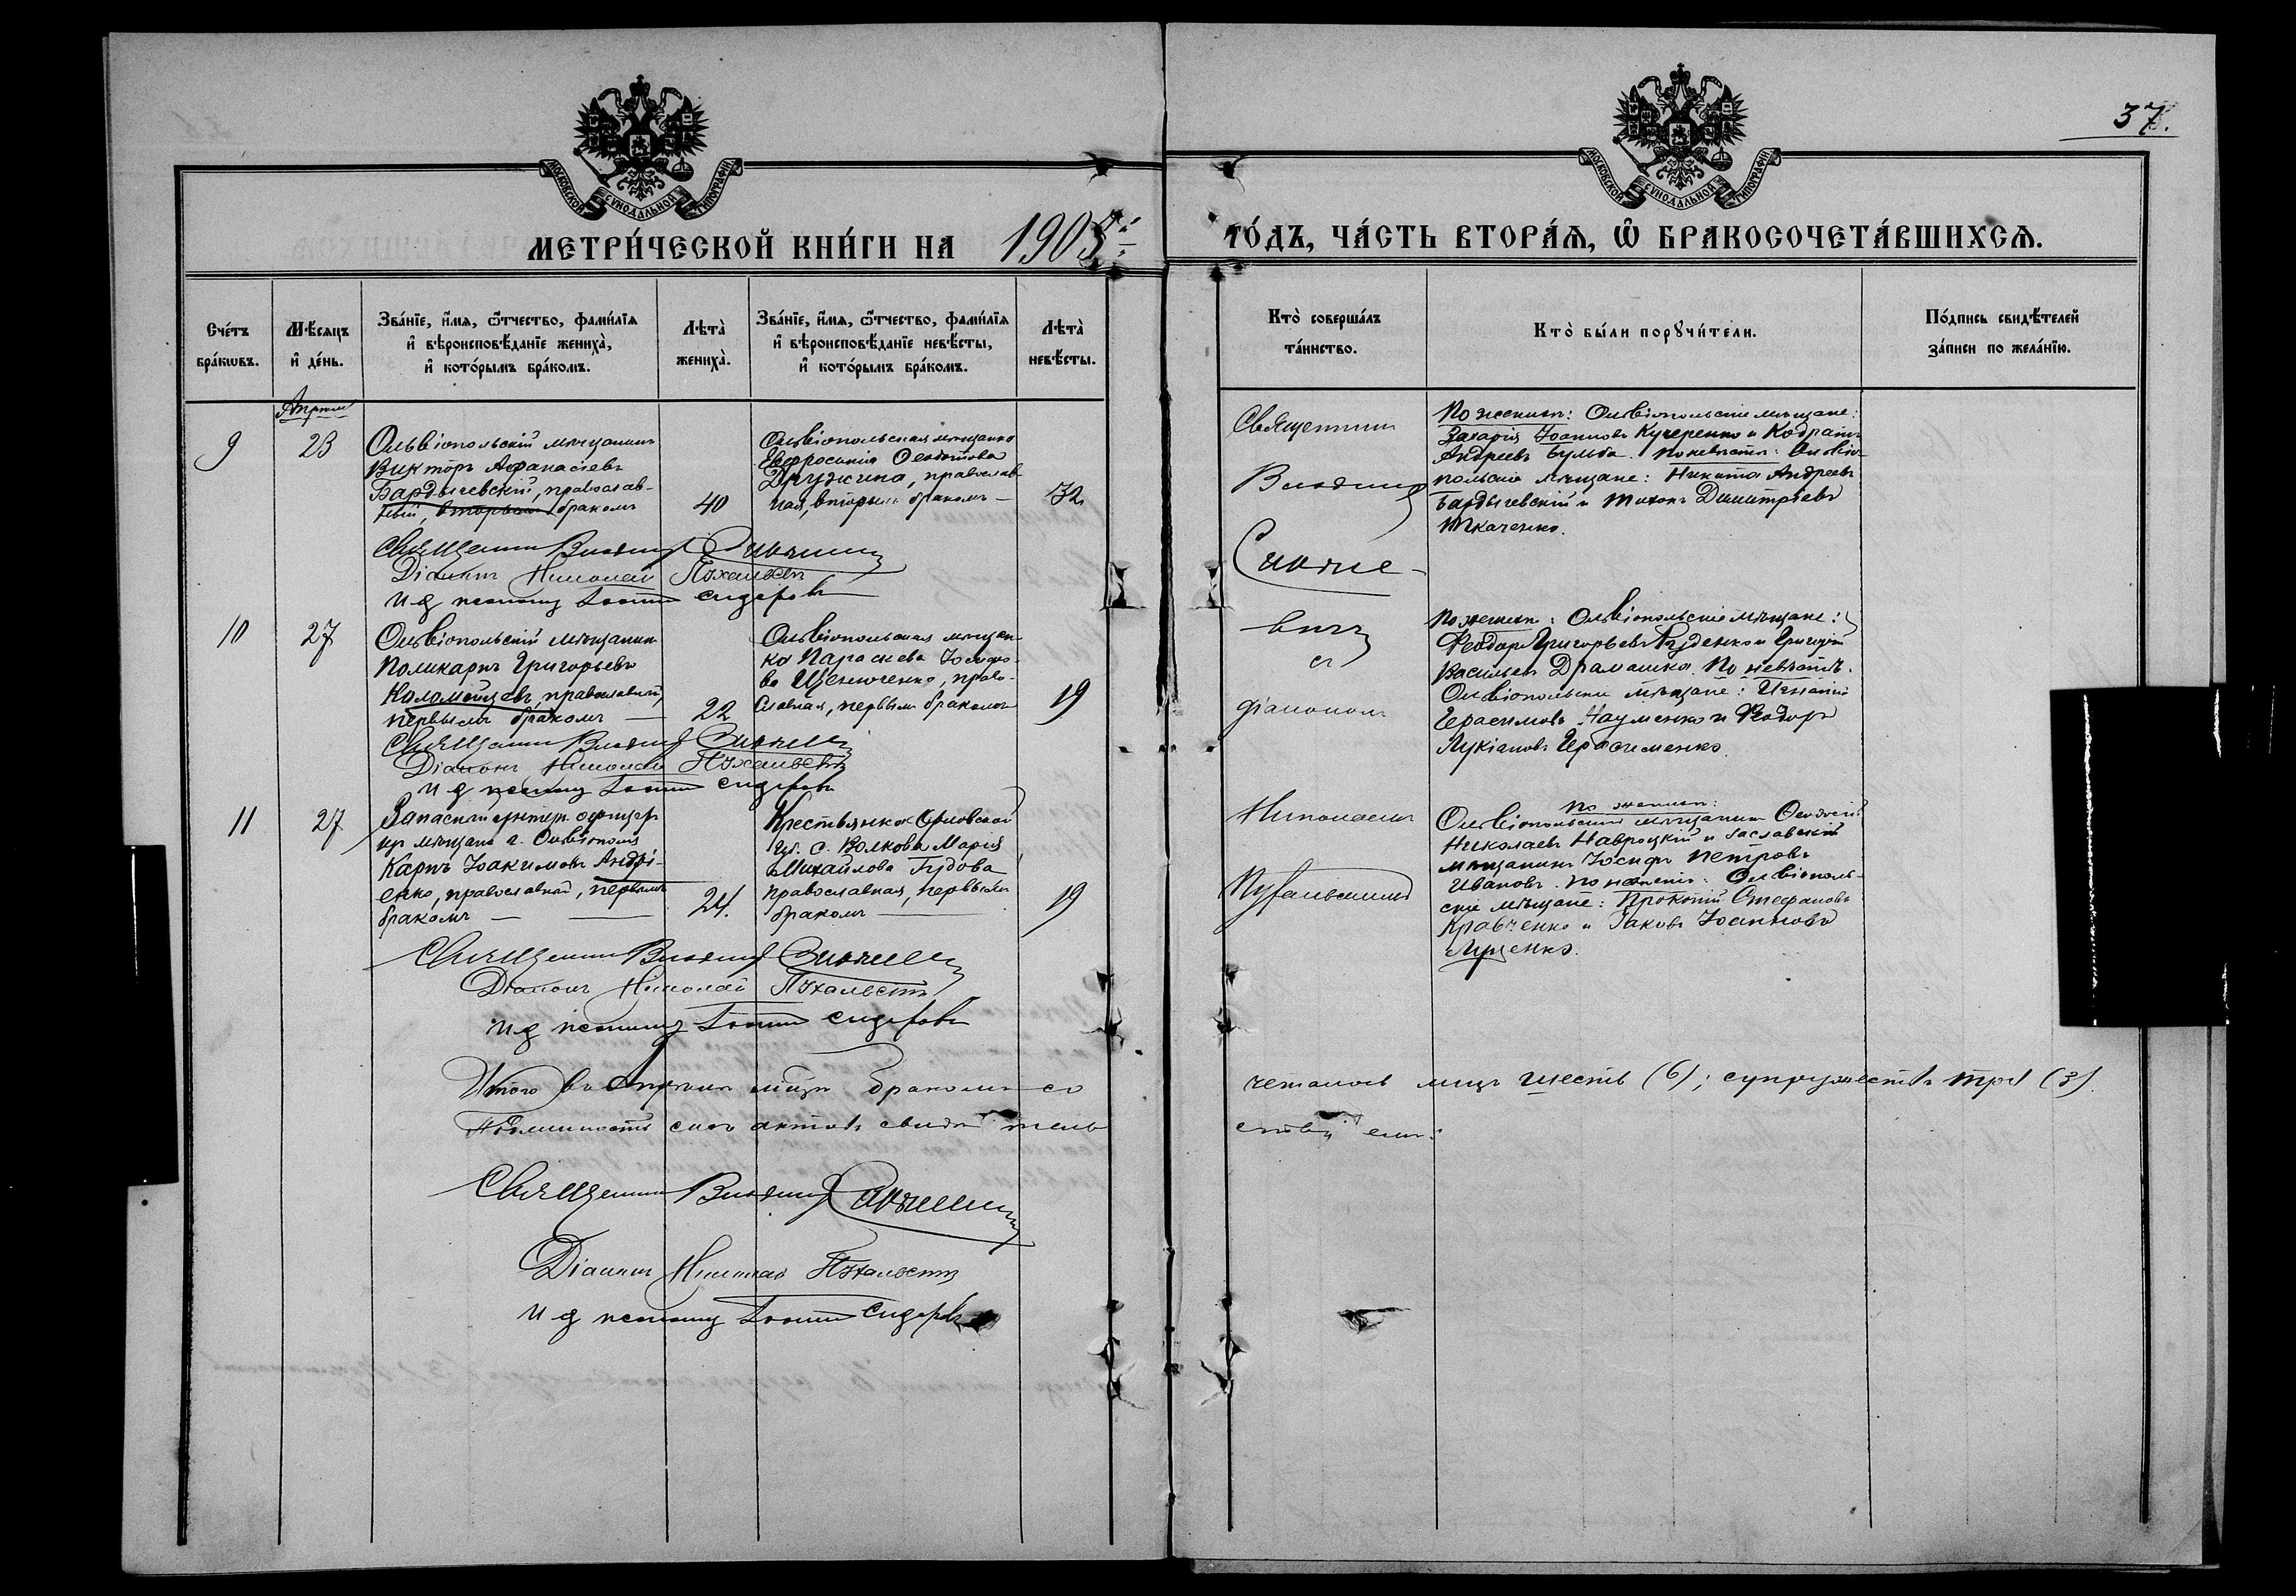 37.
МОСКОВСКОЙ СѴНОДАЛЬНОЙ ТИПОГРАФІИ
МОСКОВСКОЙ СѴНОДАЛЬНОЙ ТИПОГРАФІИ
МЕТРИ́ЧЕСКОЙ КНИ́ГИ НА 1905й
ГО́ДЪ, ЧА́СТЬ ВТОРА́Ѧ, Ѽ БРАКОСОЧЕТА́ВШИХСѦ.
Сче́тъ бра́кѡвъ.
Мѣ́сѧцъ и҆ де́нь.
Зва́нїе, и҆́мѧ, ѻ҆́тчество, фами́лїѧ
и҆ вѣроисповѣ́данїе жениха̀,
и҆ кото́рымъ бра́комъ.
Лѣта̀ жениха̀.
Зва́нїе, и҆́мѧ, ѻ҆́тчество, фами́лїѧ
и҆ вѣроисповѣ́данїе невѣ́сты,
и҆ кото́рымъ бра́комъ.
Лѣта̀ невѣ́сты.
Кто̀ соверша́лъ
та́инство.
Кто̀ бы́ли порꙋчи́тели.
По́дпись свидѣ́телей
за́писи по жела́нїю.
Апрѣль
9
23
Ольвіопольскій мѣщанинъ
Викторъ Афанасіевъ
Бардычевскій, православ-
ный, вторымъ бракомъ
40
Ольвіопольская мѣщанка
Евфросинія Ѳеодотова
Дружина, православ-
ная, вторымъ бракомъ —
32
Священникъ
По женихѣ: Ольвіопольскіе мѣщане:
Захарія Іоанновъ Кучеренко и Кодратъ
Андреевъ Бульба. По невѣстѣ: Ольвіо-
польскіе мѣщане: Никита Андреевъ
Бардычевскій и Тихонъ Димитріевъ
Ткаченко.
Священникъ
Діаконъ Николай
и д псаломщ Сидоровъ
10
27
Ольвіопольскій мѣщанинъ
Поликарпъ Григорьевъ
Коломойцевъ, православный,
первымъ бракомъ —
22
Ольвіопольская мѣщан-
ка Параскева Іосифо-
ва Щенюченко, право-
славная, первымъ бракомъ
19
съ
діакономъ
По женихѣ: Ольвіопольскіе мѣщане:
Ѳеодоръ Григорьевъ Руденко и Григорій
Васильевъ Драмашко. По невѣстѣ:
Ольвіопольскіе мѣщане: Игнатій
Герасимовъ Науменко и Ѳеодоръ
Лукіановъ Герасименко.
Священникъ
Діаконъ Николай
и д псаломщ Сидоровъ
11
27
Запасный унтеръ-офицеръ
изъ мѣщанъ г. Ольвіополя
Карпъ Іоакимовъ Андрі-
енко, православный, первымъ
бракомъ —
24.
Крестьянка Орловской
губ. с. Волкова Марія
Михайлова Гудова
православная, первымъ
бракомъ —
19
Николаемъ
По женихѣ:
Ольвіопольскій мѣщанинъ Ѳеодосій
Николаевъ Навроцкій и Заславскій
мѣщанинъ Іосифъ Петровъ
Ивановъ. По невѣстѣ: Ольвіополь-
скіе мѣщане: Прокопій Стефановъ
Кравченко и Іаковъ Іоанновъ
Луценко.
Священникъ
Діаконъ Николай
и д псаломщ Сидоровъ
Итого въ Апрѣлѣ мѣсяцѣ бракомъ со
четалось лицъ шесть (6); супружествъ три (3).
Подлинность сихъ актовъ свидѣтель
ствуемъ:
Священникъ
Діаконъ Николай
и д псаломщ Сидоровъ